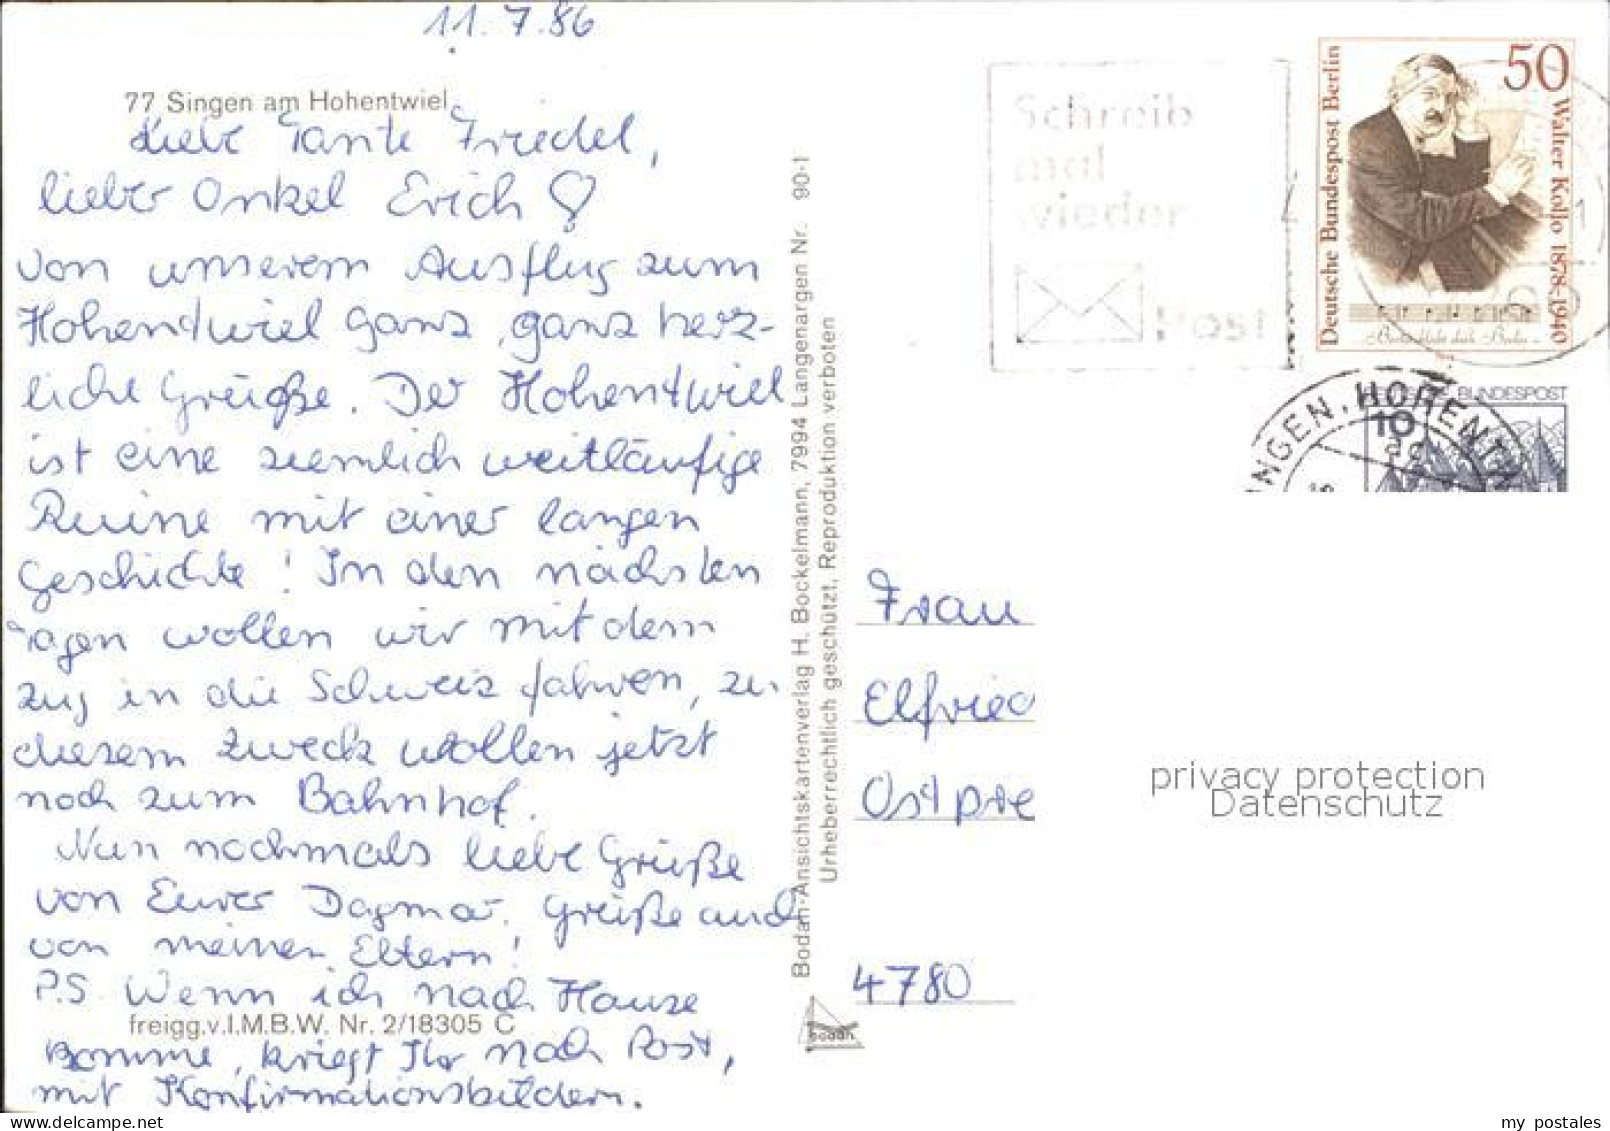 11.7.86
77 Singen am Hohentwiel
Liebe Tante Friedel,
lieber Onkel Erich!
von unserem Ausflug zum
Hohentwiel ganz, ganz herz-
liche Grüße. Der Hohentwiel
ist eine ziemlich weitläufige
Ruine mit einer langen
Geschichte! In den nächsten
Tagen wollen wir mit dem
Zug in die Schweiz fahren, zu
diesem Zweck wollen jetzt
noch zum Bahnhof.
Nun nochmals liebe Grüße
von Eurer Dagmar. Grüße auch
von meinen Eltern!
P.S. Wenn ich nach Hause
freigg.v.I.M.B.W. Nr. 2/18305 C
komme, kriegt Ihr noch Post,
mit Konfirmationsbildern.
Bodan-Ansichtskartenverlag H. Bockelmann, 7994 Langenargen Nr. 90-1
Urheberrechtlich geschützt, Reproduktion verboten
bodan
Schreib
mal
wieder
Post
Deutsche Bundespost Berlin
50
Walter Kollo 1878-1940
BUNDESPOST
10
INGEN, HOHENTW
Frau
Elfried
Ostpre
4780
privacy protection
Datenschutz
my postales